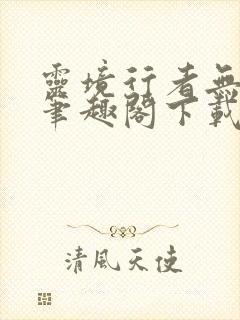 靈境行者無
筆趣閣下載
清風天使